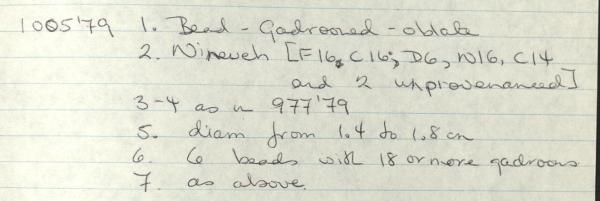 1005'79 1. Bead - Gadrooned - oblate
2. Nineveh [F16, C16; D6, N16, C14
and 2 unprovenanced]
3-4 as in 977'79
5. diam from 1.4 to 1.8 cm
6. 6 beads with 18 or more gadroons
7. as above.